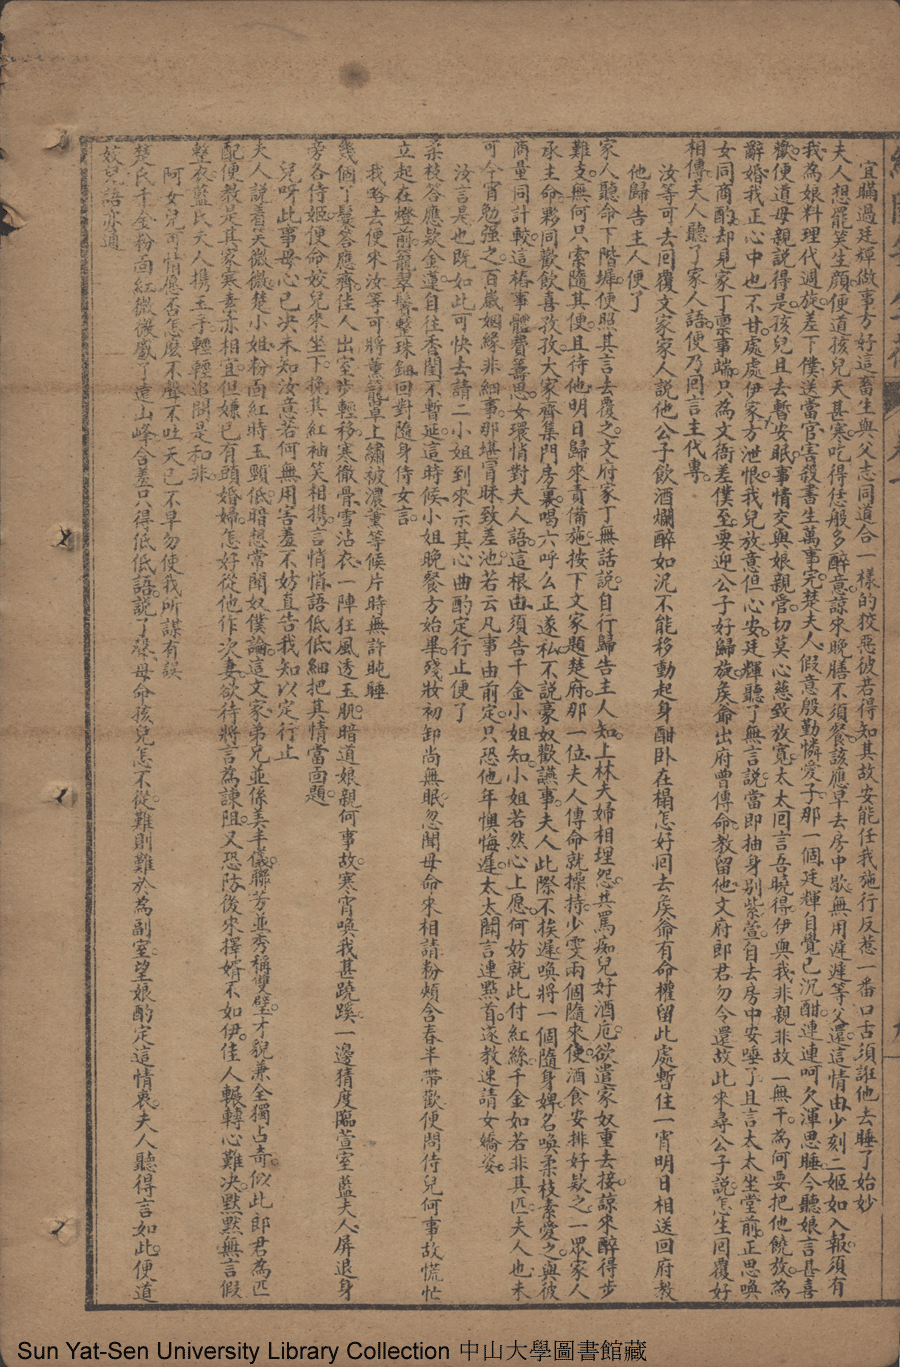 宜瞞過廷輝做事方好這畜生與父志同道合一樣的狡惡彼若得知其故安能任我施行反惹一番口舌須誑他去睡了始妙
夫人想罷笑生顏便道孩兒天甚寒吃得恁般多醉意諒來晚膳不須餐該應早去房中歇無用遲遲等父還這情由少刻二姬如入報須有
我為娘料理代週旋差下僕送當官害殺書生萬事完楚夫人假意殷勤憐愛子那一個廷輝自覺已沉酣連連呵欠渾思睡今聽娘言甚喜
歡便道母親說得是孩兒且去暫安眠事情交與娘親管切莫心慈致放寬太太回言吾曉得伊與我非親非故一無干為何要把他饒放為
辭婚我正心中也不甘處處伊家方泄恨我兒放意但心安廷輝聽了無言說當即抽身別紫萱自去房中安唾了且言太太坐堂前正思喚
女同商酌却見家丁稟事端只為文衙差僕至要迎公子好歸旋矦爺出府曾傳命教留他文府郎君勿令還故此來尋公子說怎生回覆好
相傳夫人聽了家人語便乃回言主代專
汝等可去回覆文家家人說他公子飲酒爛醉如泥不能移動起身酣卧在榻怎好回去矦爺有命權留此處暫住一宵明日相送回府教
他歸告主人便了
家人聽命下階墀便照其言去覆之文府家丁無話說自行歸告主人知上林夫婦相埋怨其罵痴兒好酒卮欲遣家奴重去接諒來醉得步
難支無何只索隨其便且待他明日歸來責備施按下文家題楚府那一位夫人傳命就操持少雯兩個隨來使酒食安排好欵之一眾家人
承主命夥同歡飲喜孜孜大家齊集門房裏喝六呼么正遂私不說豪奴歡讌事夫人此際不挨遲喚將一個隨身婢名喚柔枝素愛之與彼
商量同計較這樁事體費籌思女環情對夫人語這根由須告千金小姐知小姐若然心上愿何妨就此付紅絲千金如若非其匹夫人也未
可今宵勉強之百歲姻緣非細事那堪冒昧致差池若云凡事由前定只恐他年懊悔遲太太聞言連點首遂教速請女嬌姿
汝言是也既如此可快去請二小姐到來示其心曲酌定行止便了
柔枝答應欵金蓮自往香閨不暫延這時候小姐晚餐方始畢殘妝初卸尚無眠忽聞母命來相請粉頰含春半帶歡便問侍兒何事故慌忙
立起在燈前籠翠鬢整珠鈿回對隨身侍女言
我略去便來汝等可將薰籠罩上繡被濃薰等候片時無許盹睡
幾個丫鬟答應齊佳人出室步輕移寒徹骨雪沾衣一陣狂風透玉肌暗道娘親何事故寒宵喚我甚蹺蹊一邊猜度臨萱室藍夫人屏退身
旁各侍姬便命姣兒來坐下挽其紅袖笑相携言悄悄語低低細把其情當面題
兒呀此事母心已决未知汝意若何無用害羞不妨直告我知以定行止
夫人說着笑微微楚小姐粉面紅時玉頸低暗想常聞奴僕論這文家弟兄並係美丰儀聯芳並秀稱雙璧才貌兼全獨占奇似此郎君為匹
配便教是其家寒素亦相宜但嫌已有頭婚婦怎好從他作次妻欲待將言為諫阻又恐防後來擇婿不如伊佳人輾轉心難决默默無言假
整衣藍氏夫人携玉手輕輕追問是和非
阿女兒可情愿否怎麽不聲不吐天已不早勿使我所謀有誤
楚氏千金粉面紅微微蹙了遠山峰含羞只得低低語說了聲母命孩兒怎不從難則難於為副室望娘酌定這情衷夫人聽得言如此便道
姣兒語亦通
Sun Yat-Sen University Library Collection 中山大學圖書館藏